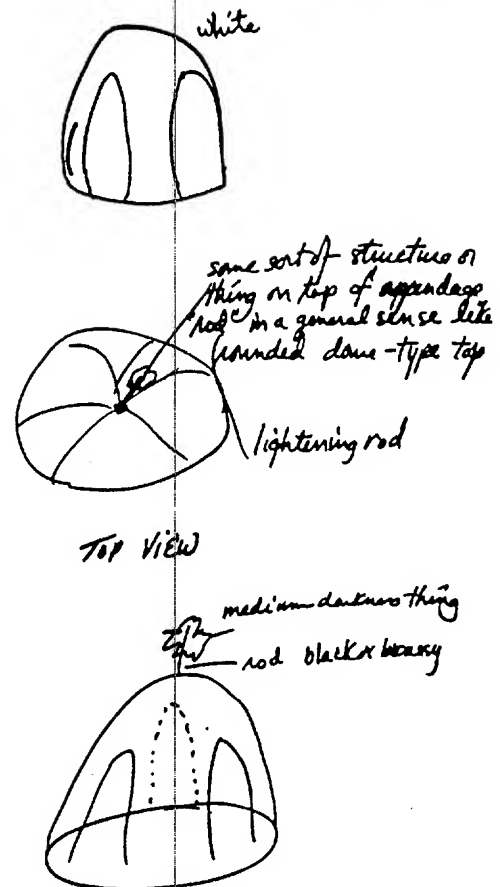 white
some sort of structure or
thing on top of appendage
"rod" in a general sense like
rounded dome-type top
lightening rod
TOP VIEW
medium darkness thing
rod black &